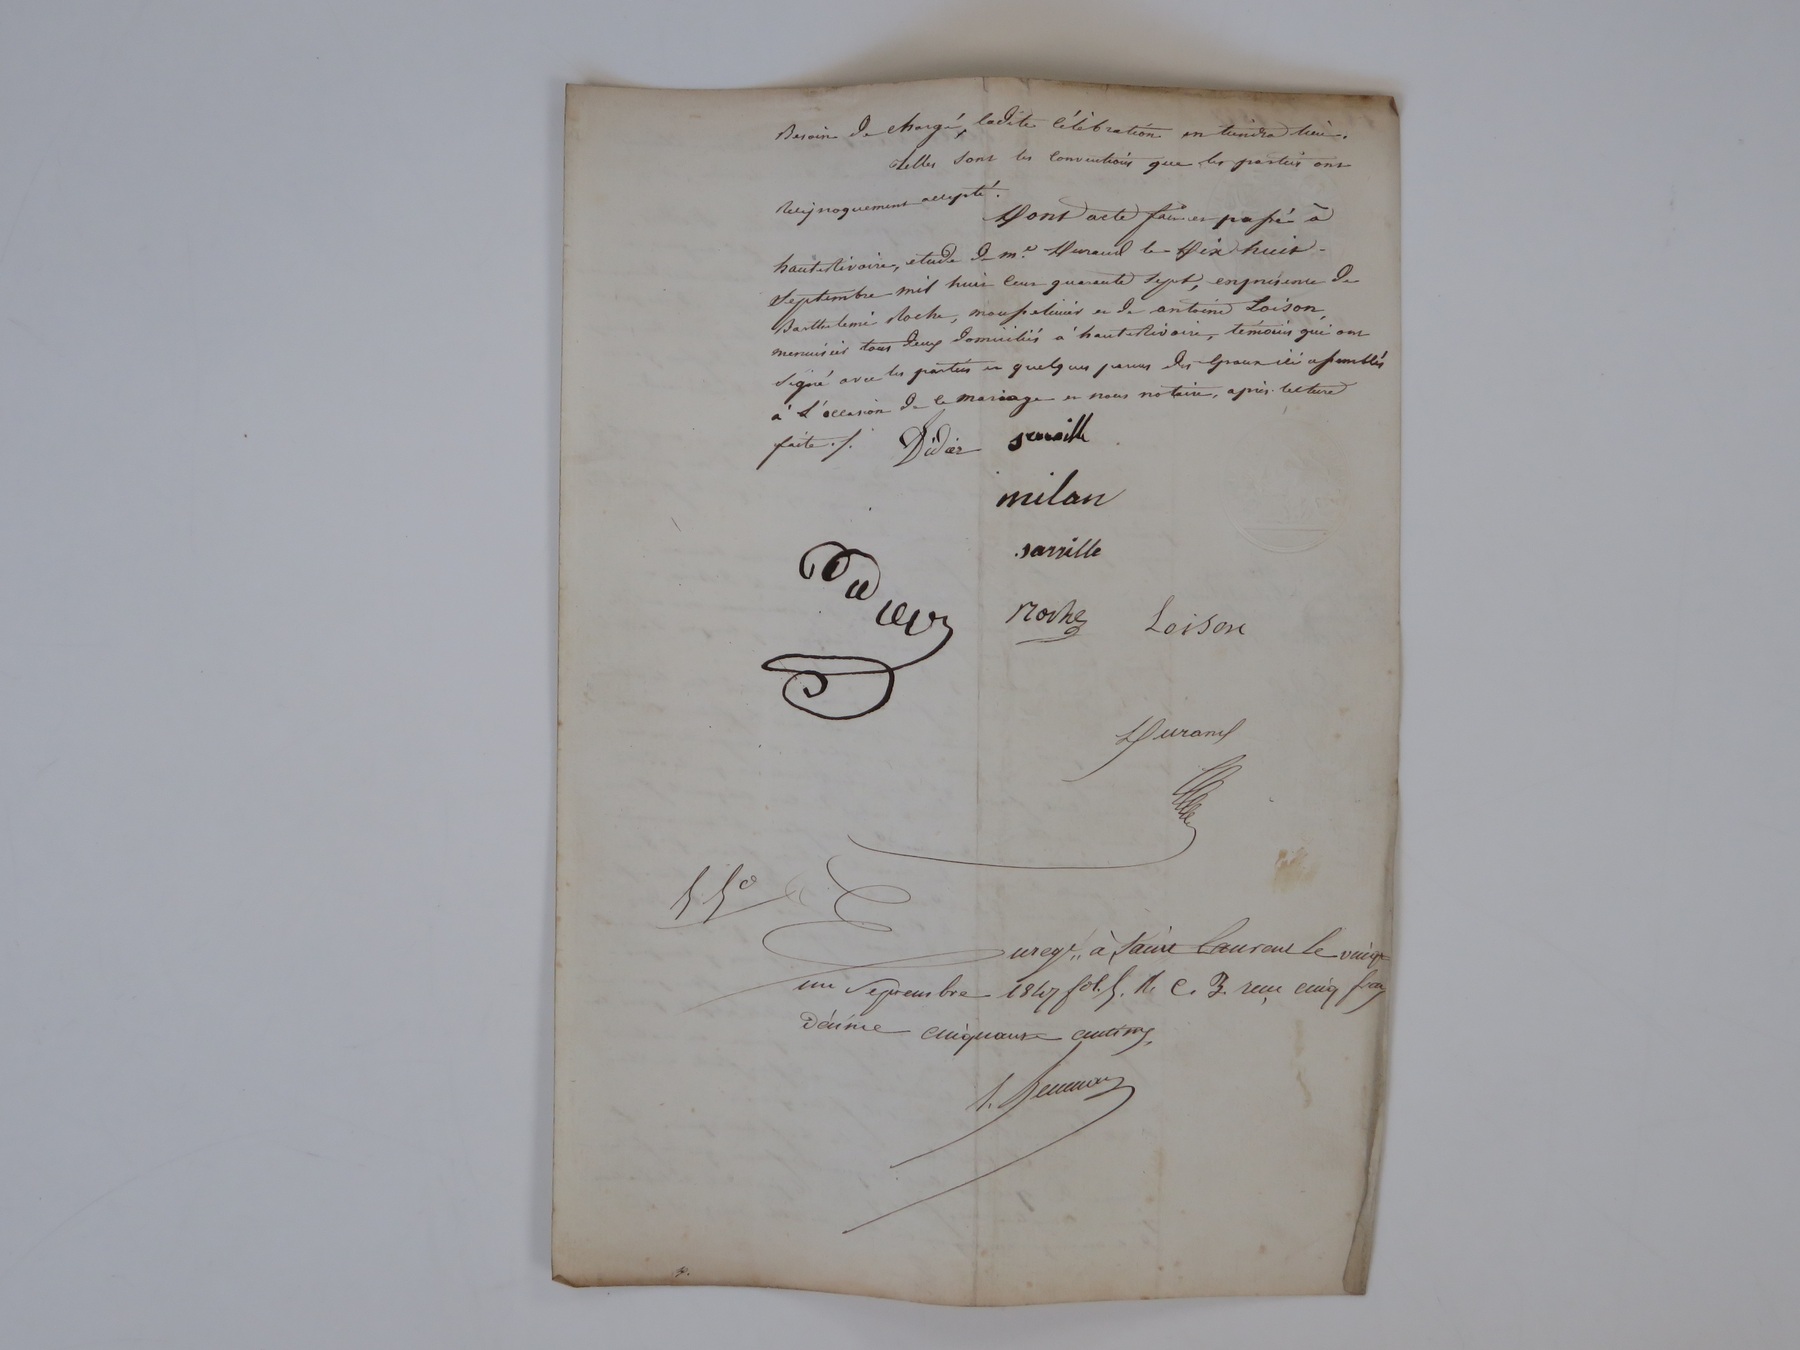 Besoin de charge, ladite célébration en tiendra lieu.
Telles sont les conventions que les parties ont
Réciproquement accepté.
Dont acte fait et passé à
hauteRivoire, etude de me. Durand le Dix huit
Septembre mil huit cent quarante Sept, en présence de
Barthelemi Roche, et de antoine Loison,
menuisier tous deux domiciliés à hauteRivoire, témoins qui ont
signé avec les parties et quelques parens des époux ici assemblés
à L'occasion de ce mariage et nous notaire, après lecture
faite ./.
Didier
milan
sarville
Didier
Roche
Loison
Durand
Enregé. à Saint Laurent le vingt
un Septembre 1847 fol. C. 3. reçu cinq francs
décime cinquante centimes.